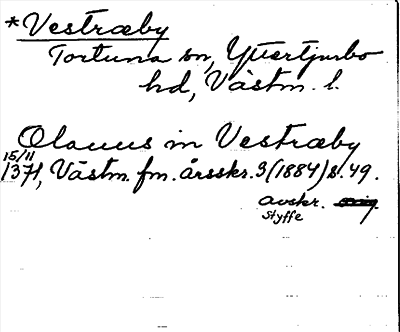 *Vestræby
Tortuna sn, Yttertjurbo
hd, Västm. l.
Olauus in Vestræby
15/11
1371, Västm. fm. årsskr. 3 (1884) s. 49.
avskr. orig.
Styffe